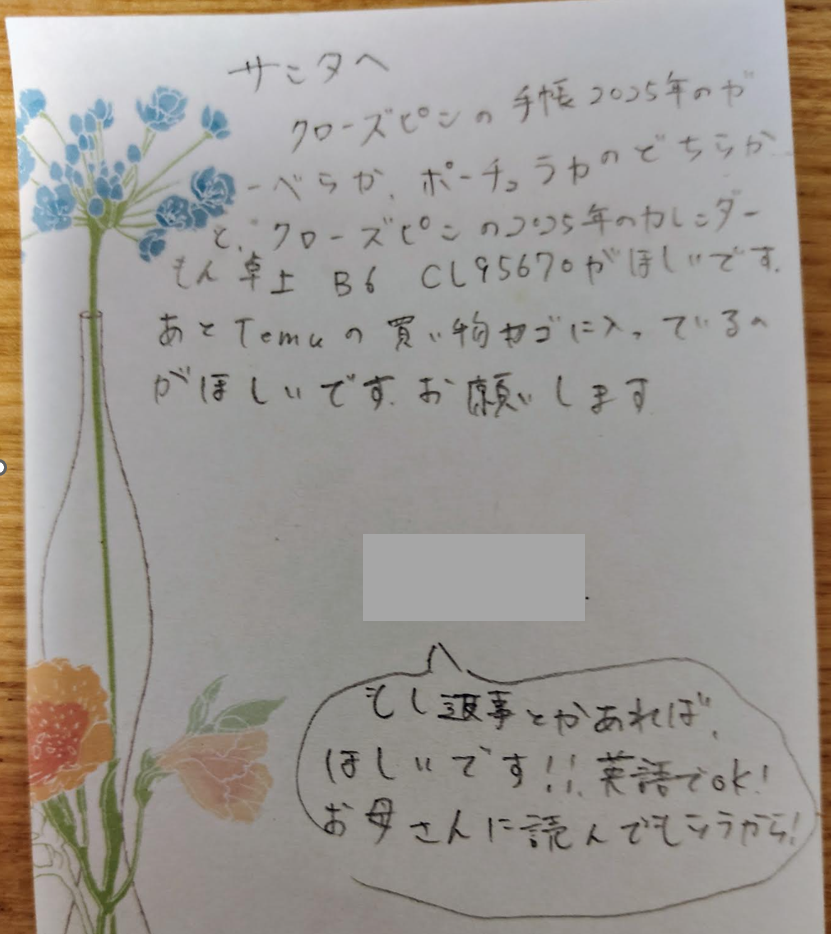 サンタへ
クローズピンの手帳2025年のガ
ーベらか、ポーチュラカのどちらか
と、クローズピンの2025年のカレンダー
もん卓上 B6 CL95670がほしいです。
あとTemuの買い物カゴに入っているの
がほしいです。お願いします
もし返事とかあれば、
ほしいです!!英語でok!
お母さんに読んでもらうから!